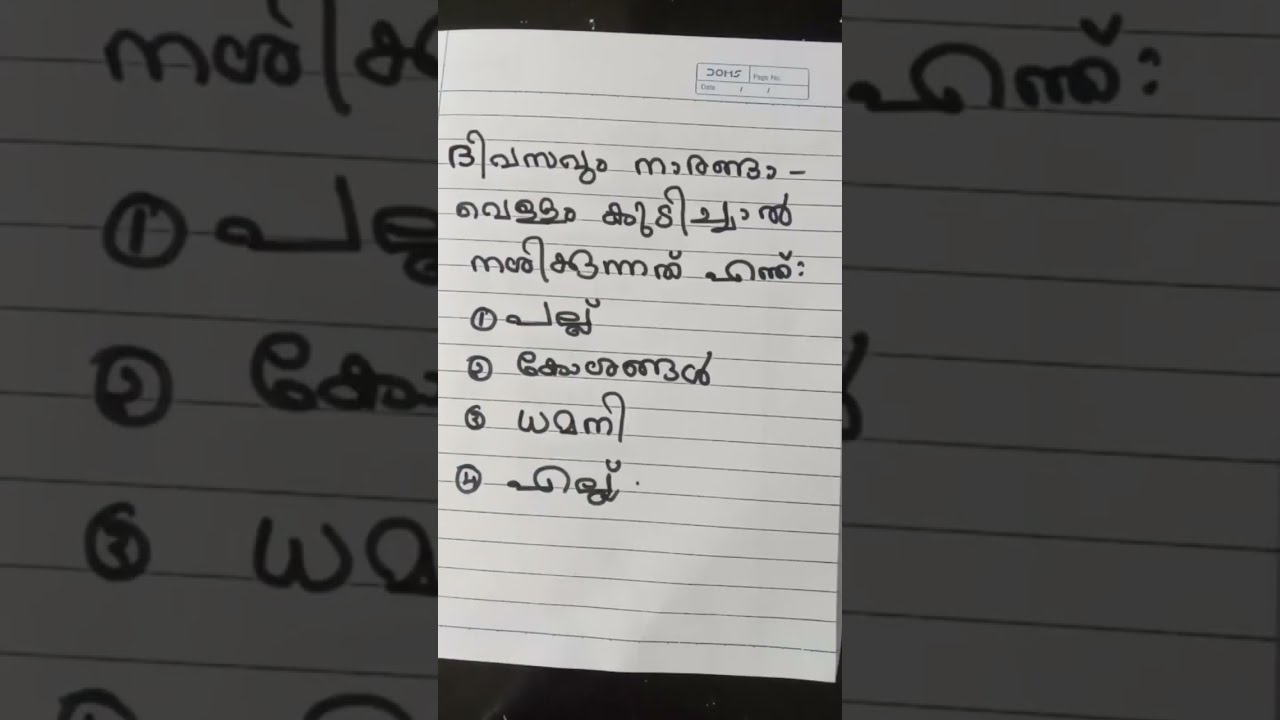 DOMS
Page No.
Date / /
ദിവസവും നാരങ്ങാ-
വെള്ളം കുടിച്ചാൽ
നശിക്കുന്നത് എന്ത്:
① പല്ല്
② കോശങ്ങൾ
③ ധമനി
④ എല്ല്.